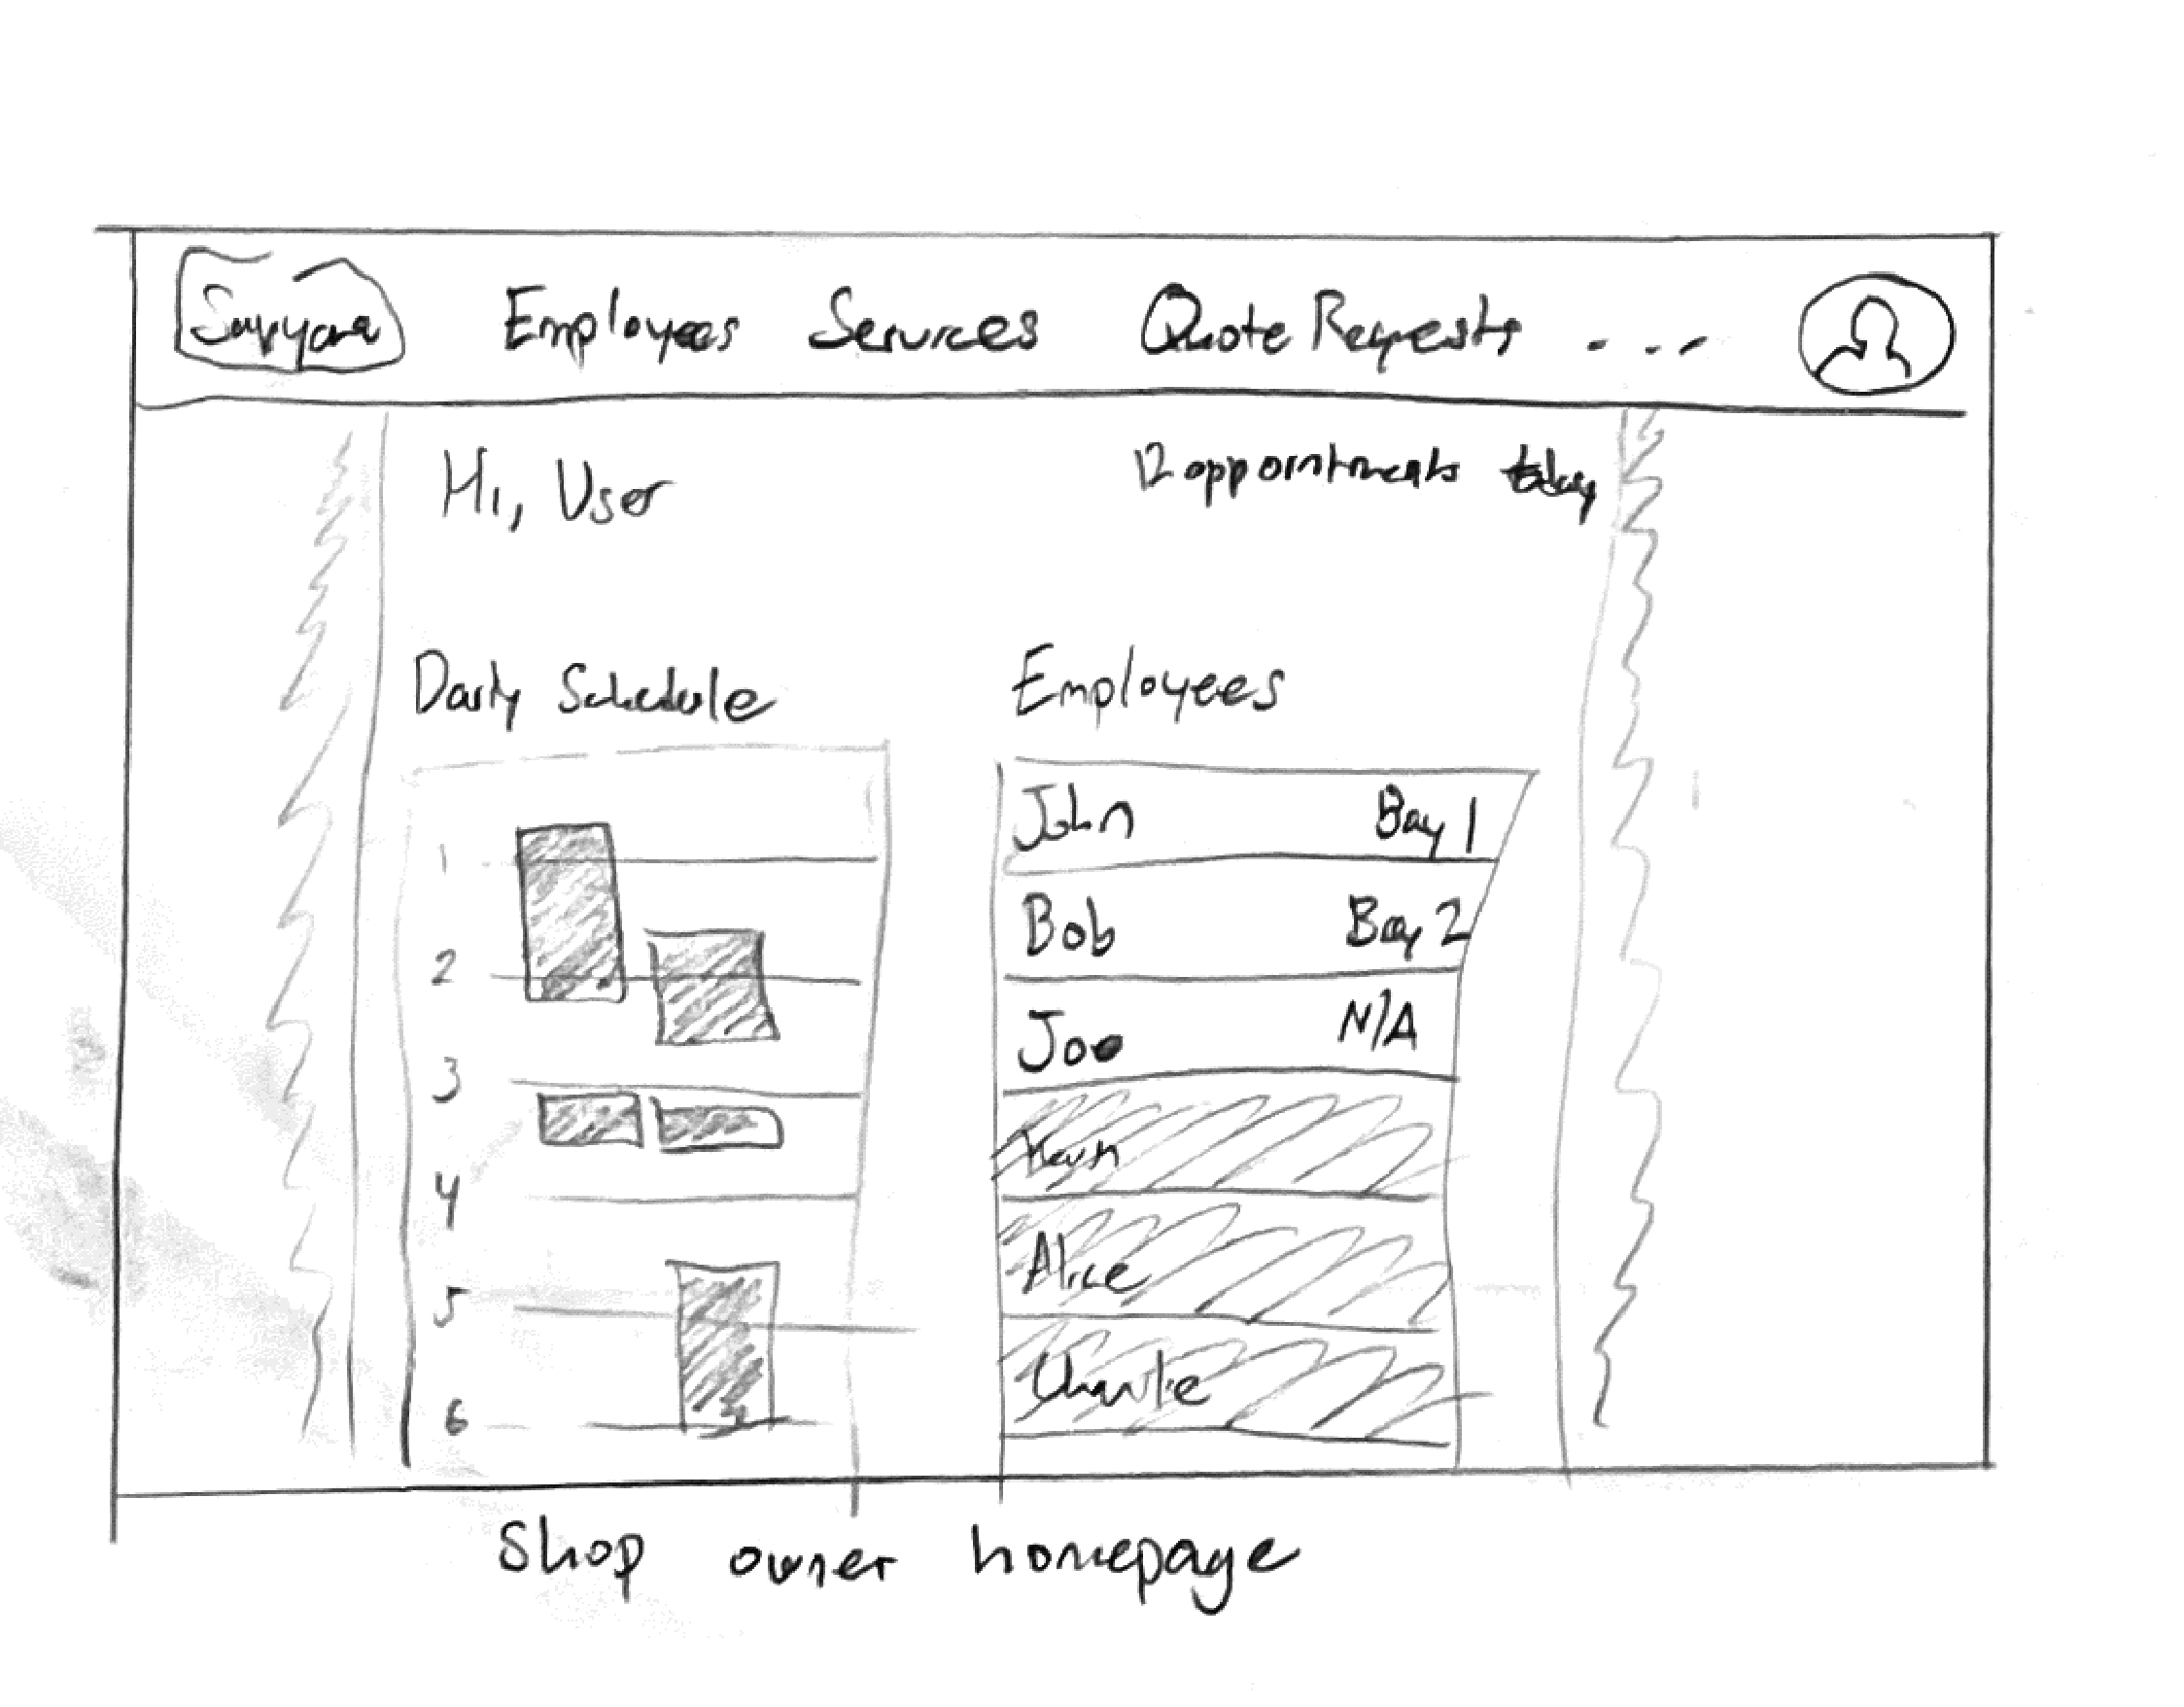 Employees Services Quote Requests ...
Hi, User
12 appointments today
Daily Schedule
1
2
3
4
5
6
Employees
John Bay 1
Bob Bay 2
Joe N/A
Kevin
Alice
Charlie
Shop owner homepage